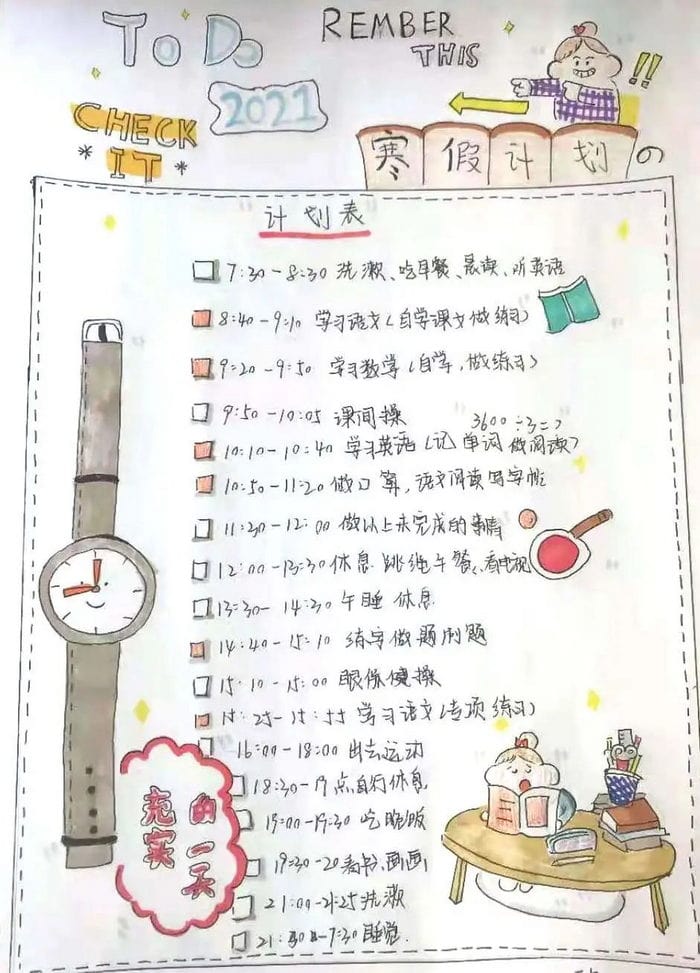 To Do
REMBER
THIS
!!
2021
CHECK
IT
寒假计划の
计划表
7:30-8:30 洗漱、吃早餐、晨读、听英语
8:40-9:10 学习语文(自学课文做练习)
9:20-9:50 学习数学(自学,做练习)
9:50-10:05 课间操
3600÷3=?
10:10-10:40 学习英语(记单词做阅读)
10:50-11:20 做口算,语文阅读写字帖
11:30-12:00 做以上未完成的事情
12:00-13:30 休息 跳绳午餐、看电视
13:30-14:30 午睡 休息
14:40-15:10 练字做题刷题
15:10-15:00 眼保健操
15:25-15:55 学习语文(专项练习)
16:00-18:00 出去运动
18:30-19点自行休息
19:00-19:30 吃晚饭
19:30-20看书、画画
21:00-21:25 洗漱
21:30-7:30 睡觉.
充实的一天